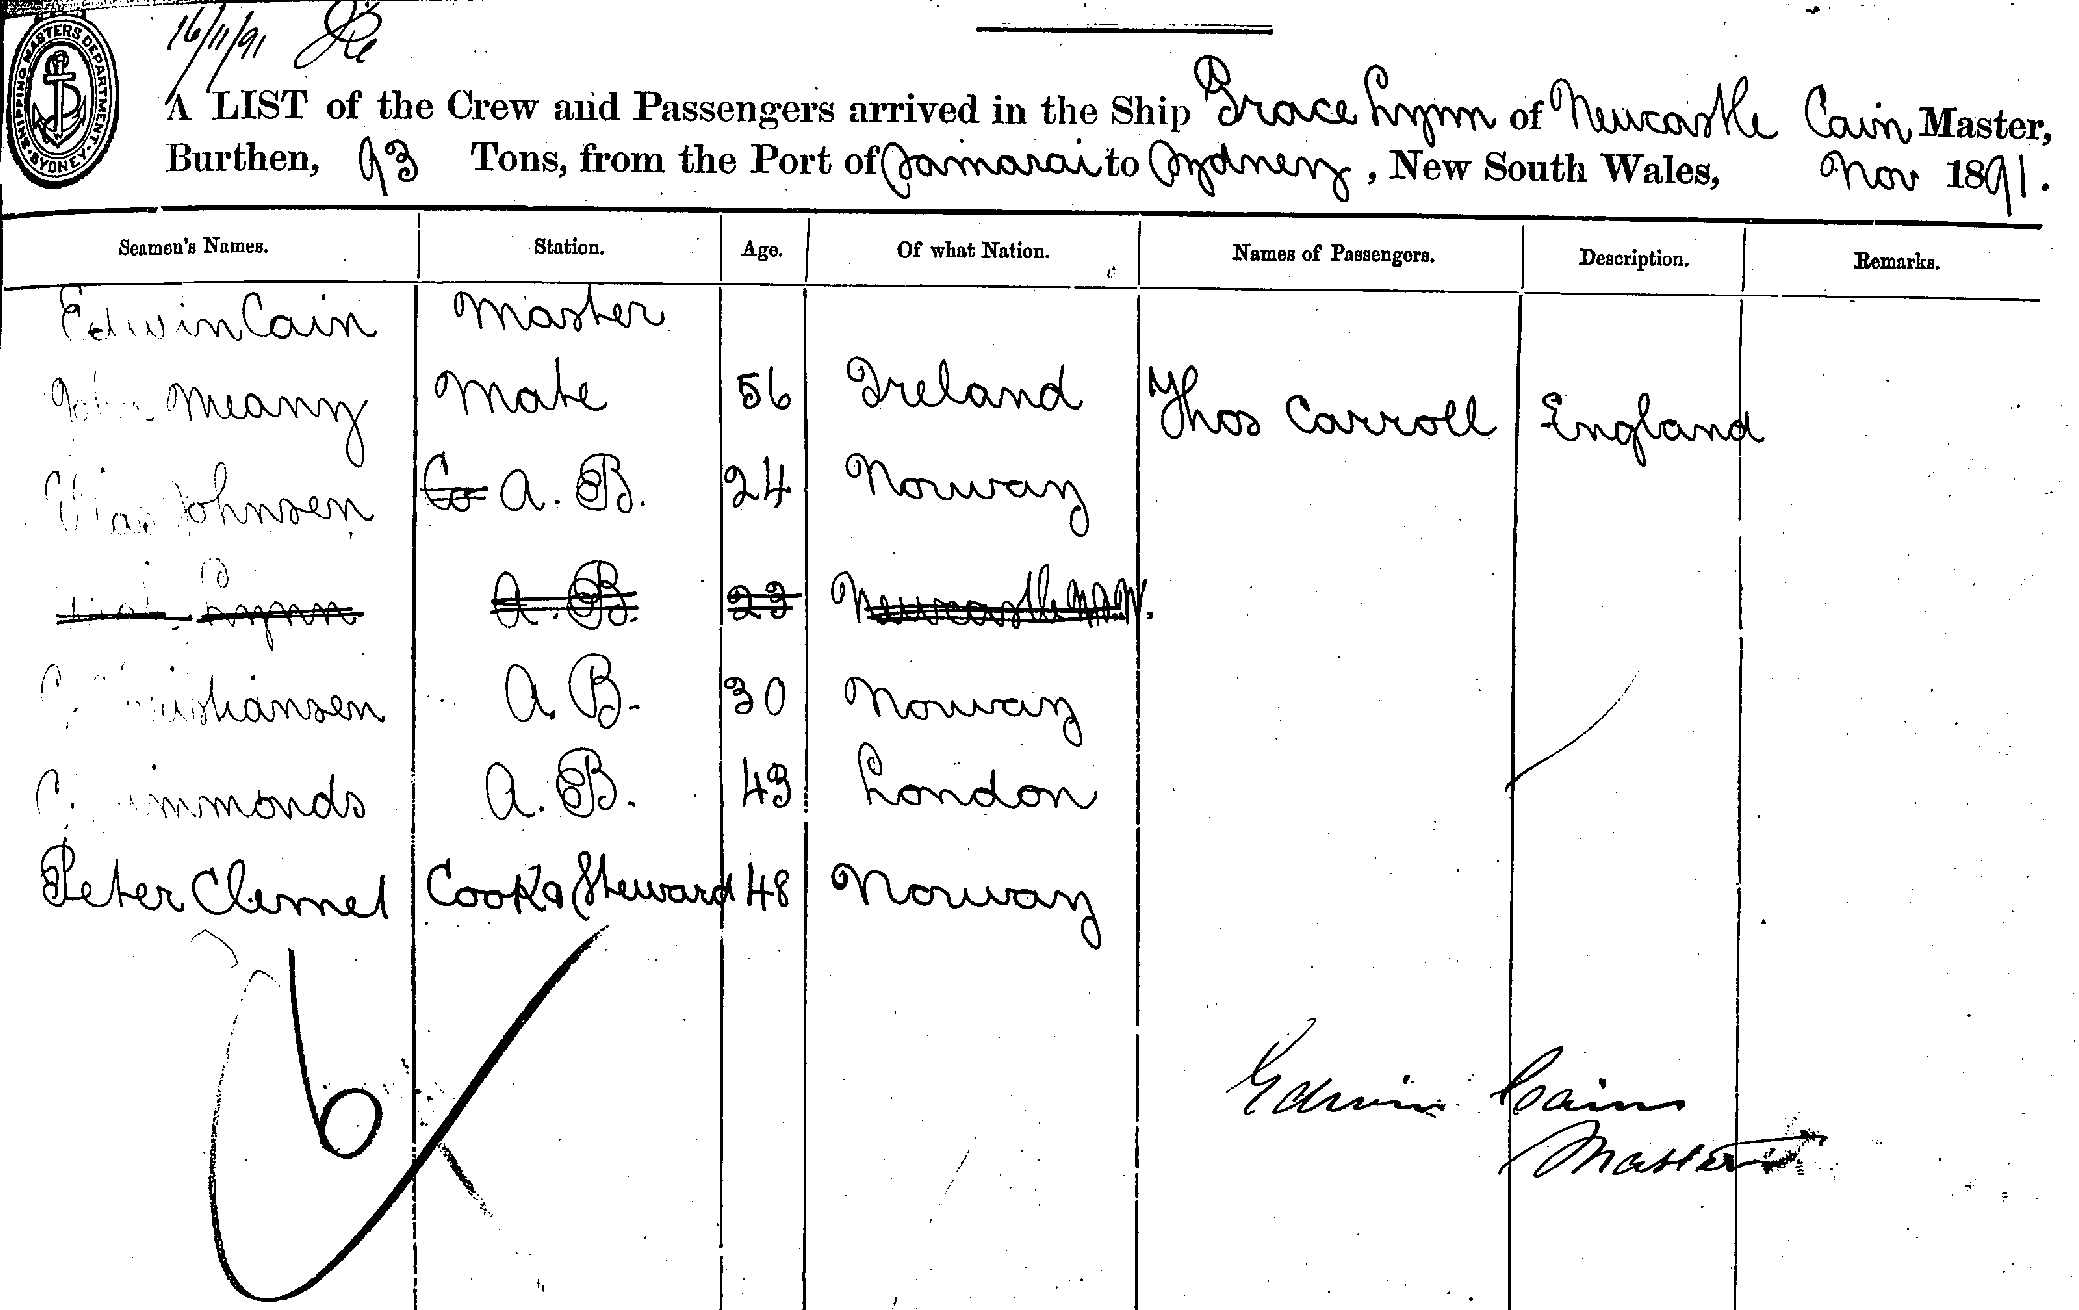 16/11/91
SHIPPING MASTERS DEPARTMENT SYDNEY
A LIST of the Crew and Passengers arrived in the Ship Grace Lynn of Newcastle Cain Master,
Burthen, 93 Tons, from the Port of Samarai to Sydney, New South Wales, Nov 1891.
Seamen's Names. Station. Age. Of what Nation. Names of Passengers. Description. Remarks.
Edwin Cain Master
John Meany Mate 56 Ireland Thos Carroll England
Johnsen Co A. B. 24 Norway
Lynn A. B. 23 Newcastle N.S.W.
C. Christiansen A. B. 30 Norway
C. Simmonds A. B. 43 London
Peter Clemet Cook & Steward 48 Norway
6
Edwin Cain
Master